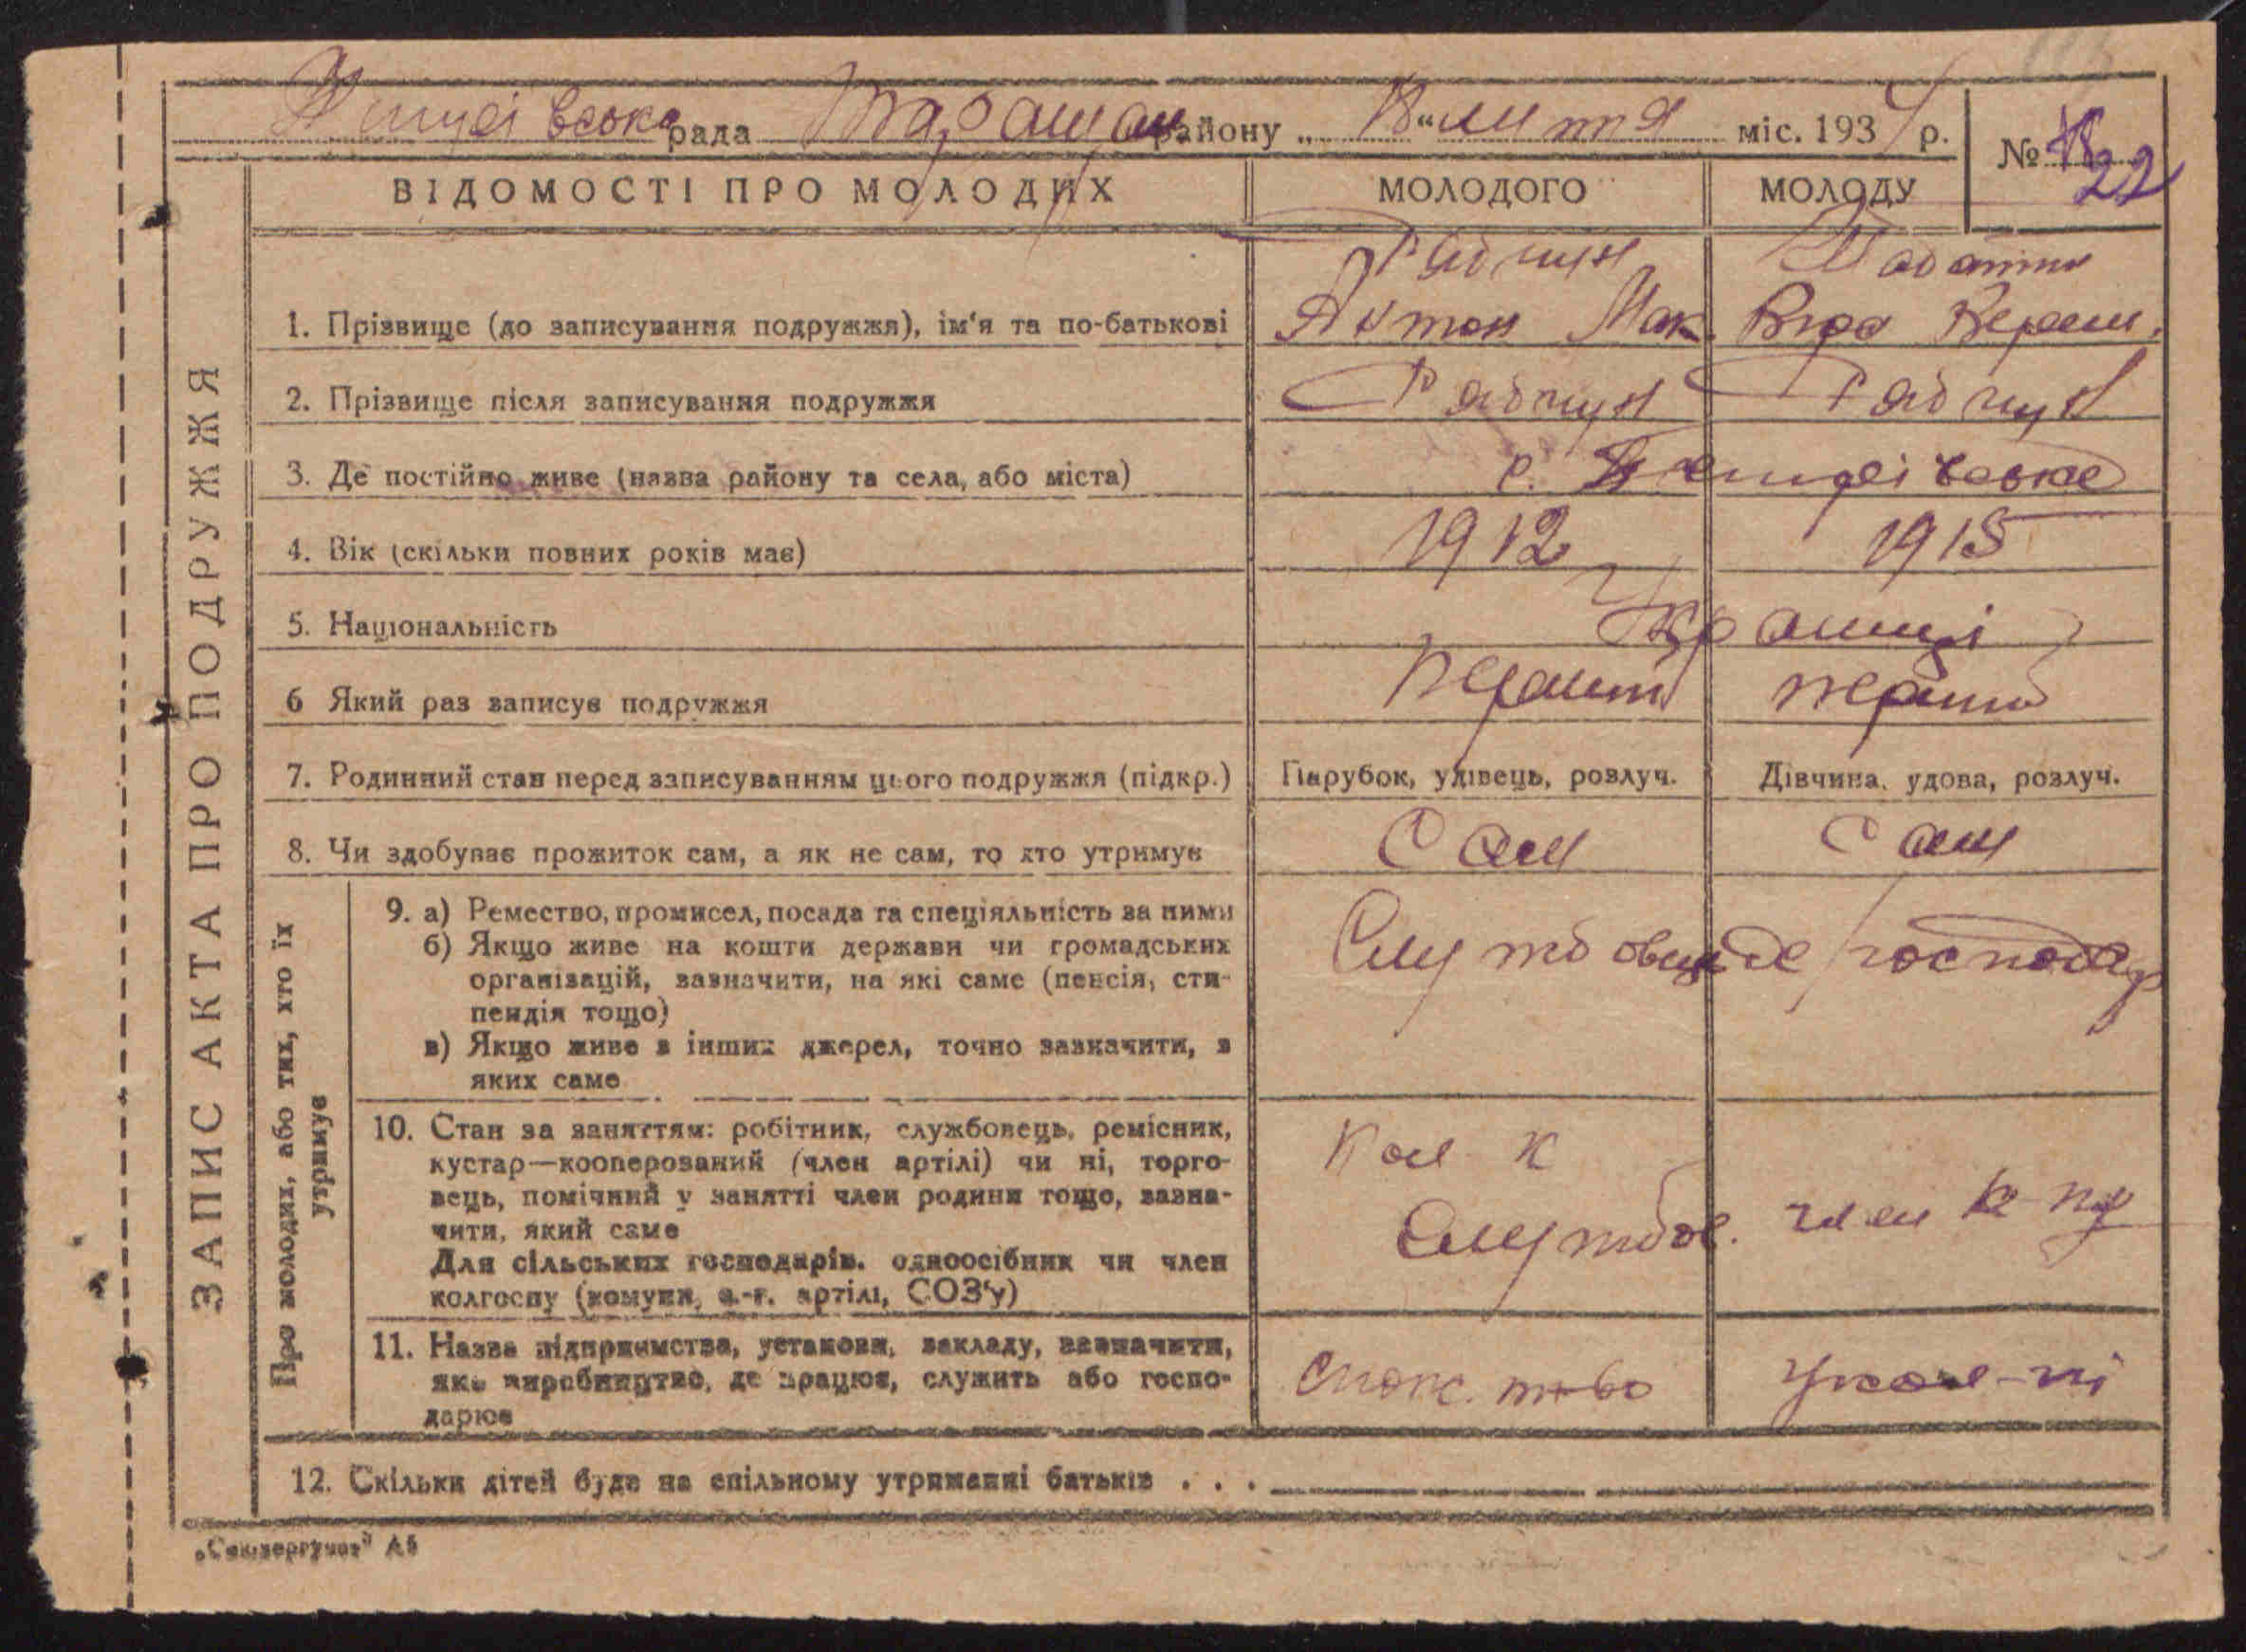 рада Таращан. району „18“ липня міс. 1934 р.
№ 22
ВІДОМОСТІ ПРО МОЛОДИХ МОЛОДОГО МОЛОДУ
Рябчун
1. Прізвище (до записування подружжя), ім'я та по-батькові Антон Мак. Віра
2. Прізвище після записування подружжя Рябчун Рябчун
3. Де постійно живе (назва району та села, або міста) с.
4. Вік (скільки повних років має) 1912 1915
5. Національність Українці
6 Який раз записує подружжя перший перший
7. Родинний стан перед записуванням цього подружжя (підкр.) Парубок, удівець, розлуч. Дівчина, удова, розлуч.
8. Чи здобуває прожиток сам, а як не сам, то хто утримує Сам Сам
9. а) Ремество, промисел, посада та спеціяльність за ними
б) Якщо живе на кошти держави чи громадських
організацій, зазначити, на які саме (пенсія, сти-
пендія тощо)
в) Якщо живе з інших джерел, точно зазначити, з
яких саме
Службовець господар
10. Стан за заняттям: робітник, службовець, ремісник,
кустар—кооперований (член артілі) чи ні, торго-
вець, помічний у занятті член родини тощо, зазна-
чити, який саме
Для сільських господарів. одноосібник чи член
колгоспу (комуни, с.-г. артілі, СОЗ'у)
Службов. член к-пу
11. Назва підприємства, установи, закладу, зазначити,
яке виробництво, де працює, служить або госпо-
дарює
спож. т-во
12. Скільки дітей буде на спільному утриманні батьків . . .
ЗАПИС АКТА ПРО ПОДРУЖЖЯ
Про молодих, або тих, хто їх
утримує